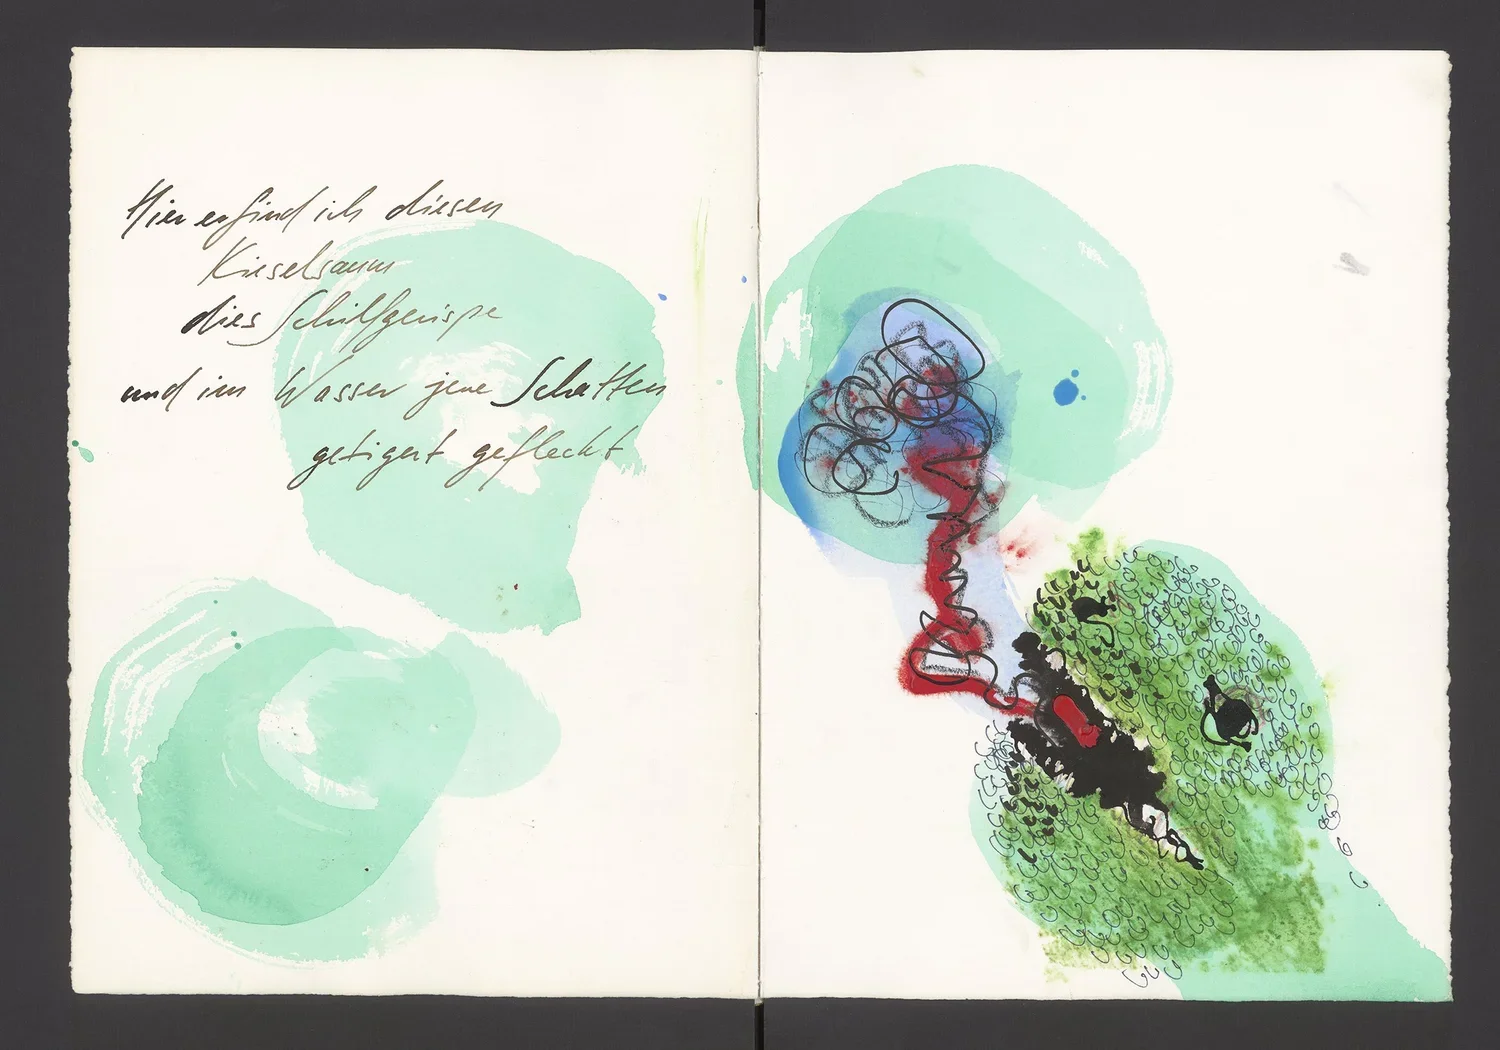 Hier erfind ich diesen
Kieselsaum
dies Schilfgerispe
und im Wasser jene Schatten
getigert gefleckt